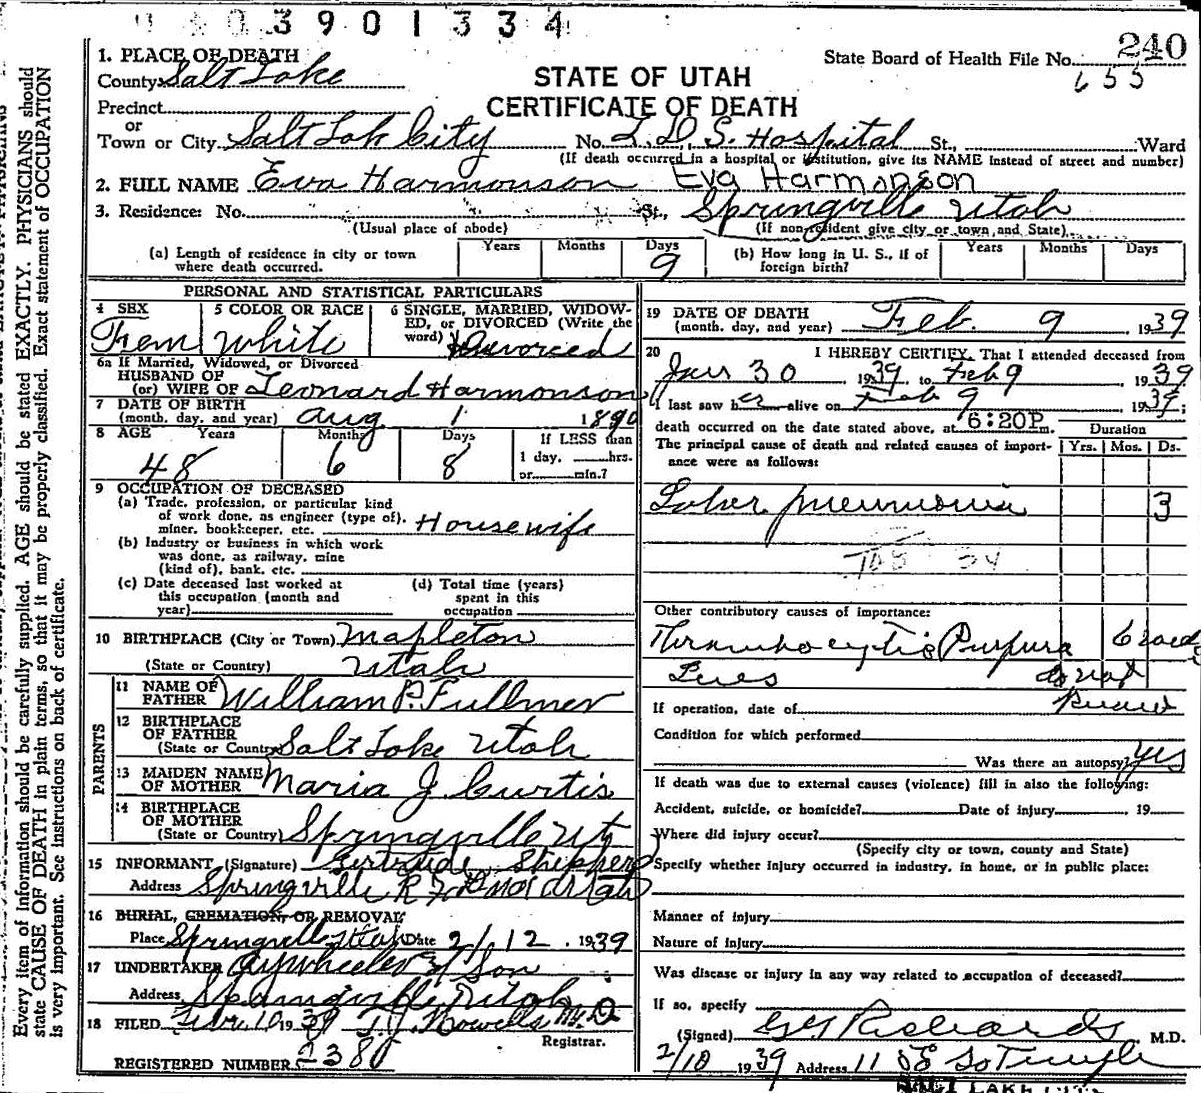 3901334
1. PLACE OF DEATH
State Board of Health File No. 240
County Salt Lake
655
STATE OF UTAH
CERTIFICATE OF DEATH
Precinct
or
Town or City Salt Lak City No. L.D.S. Hospital St., Ward
(If death occurred in a hospital or institution, give its NAME instead of street and number)
2. FULL NAME Eva Harmonson Eva Harmonson
3. Residence: No. St., Springville Utah
(Usual place of abode) (If non-resident give city or town, and State)
(a) Length of residence in city or town where death occurred. Years Months Days 9
(b) How long in U. S., if of foreign birth? Years Months Days
PERSONAL AND STATISTICAL PARTICULARS
4 SEX 5 COLOR OR RACE 6 SINGLE, MARRIED, WIDOWED, or DIVORCED (Write the word)
Fem White Divorced
6a If Married, Widowed, or Divorced
HUSBAND OF
(or) WIFE OF Leonard Harmonson
7 DATE OF BIRTH
(month, day, and year) Aug 1 1890
8 AGE Years Months Days If LESS than
48 6 8 1 day, hrs.
or min.?
9 OCCUPATION OF DECEASED
(a) Trade, profession, or particular kind
of work done, as engineer (type of),
miner, bookkeeper, etc. Housewife
(b) Industry or business in which work
was done, as railway, mine
(kind of), bank, etc.
(c) Date deceased last worked at
this occupation (month and
year)
(d) Total time (years)
spent in this
occupation
10 BIRTHPLACE (City or Town) Mapleton
(State or Country) Utah
PARENTS
11 NAME OF
FATHER William P. Fullmer
12 BIRTHPLACE
OF FATHER
(State or Country) Salt Lake Utah
13 MAIDEN NAME
OF MOTHER Maria J Curtis
14 BIRTHPLACE
OF MOTHER
(State or Country) Springville Ut
15 INFORMANT (Signature) Gertrude Shepperd
Address Springville
16 BURIAL, CREMATION, OR REMOVAL
Place Springville Utah Date 2/12, 1939
17 UNDERTAKER A Y Wheeler & Son
Address Springville Utah
18 FILED 10 1939 T.J. Howells M.D.
Registrar.
REGISTERED NUMBER 2380
19 DATE OF DEATH
(month, day, and year) Feb. 9 1939
20 I HEREBY CERTIFY, That I attended deceased from
Jan 30 1939, to Feb 9, 1939
I last saw her alive on Feb 9, 1939;
death occurred on the date stated above, at 6:20P m. Duration
The principal cause of death and related causes of importance were as follows: Yrs. Mos. Ds.
Lobar pneumonia 3
Other contributory causes of importance:
Thrombocytic Purpura
Lues
If operation, date of
Condition for which performed
Was there an autopsy? yes
If death was due to external causes (violence) fill in also the following:
Accident, suicide, or homicide? Date of injury , 19
Where did injury occur?
(Specify city or town, county and State)
Specify whether injury occurred in industry, in home, or in public place:
Manner of injury
Nature of injury
Was disease or injury in any way related to occupation of deceased?
If so, specify
(Signed) G G Richards M.D.
2/10 1939 Address 11 E So Temple
SALT LAKE CITY
Every item of information should be carefully supplied. AGE should be stated EXACTLY. PHYSICIANS should
state CAUSE OF DEATH in plain terms, so that it may be properly classified. Exact statement of OCCUPATION
is very important. See instructions on back of certificate.